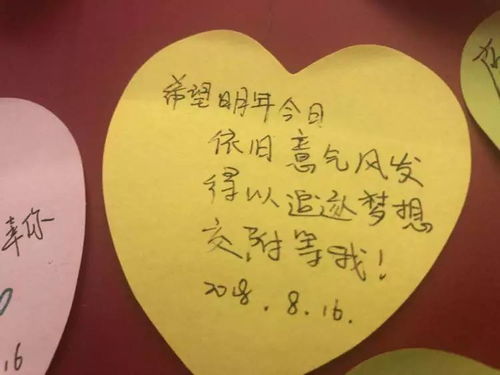 希望明年今日
依旧意气风发
得以追逐梦想
交附等我！
2018.8.16.
幸你
.16